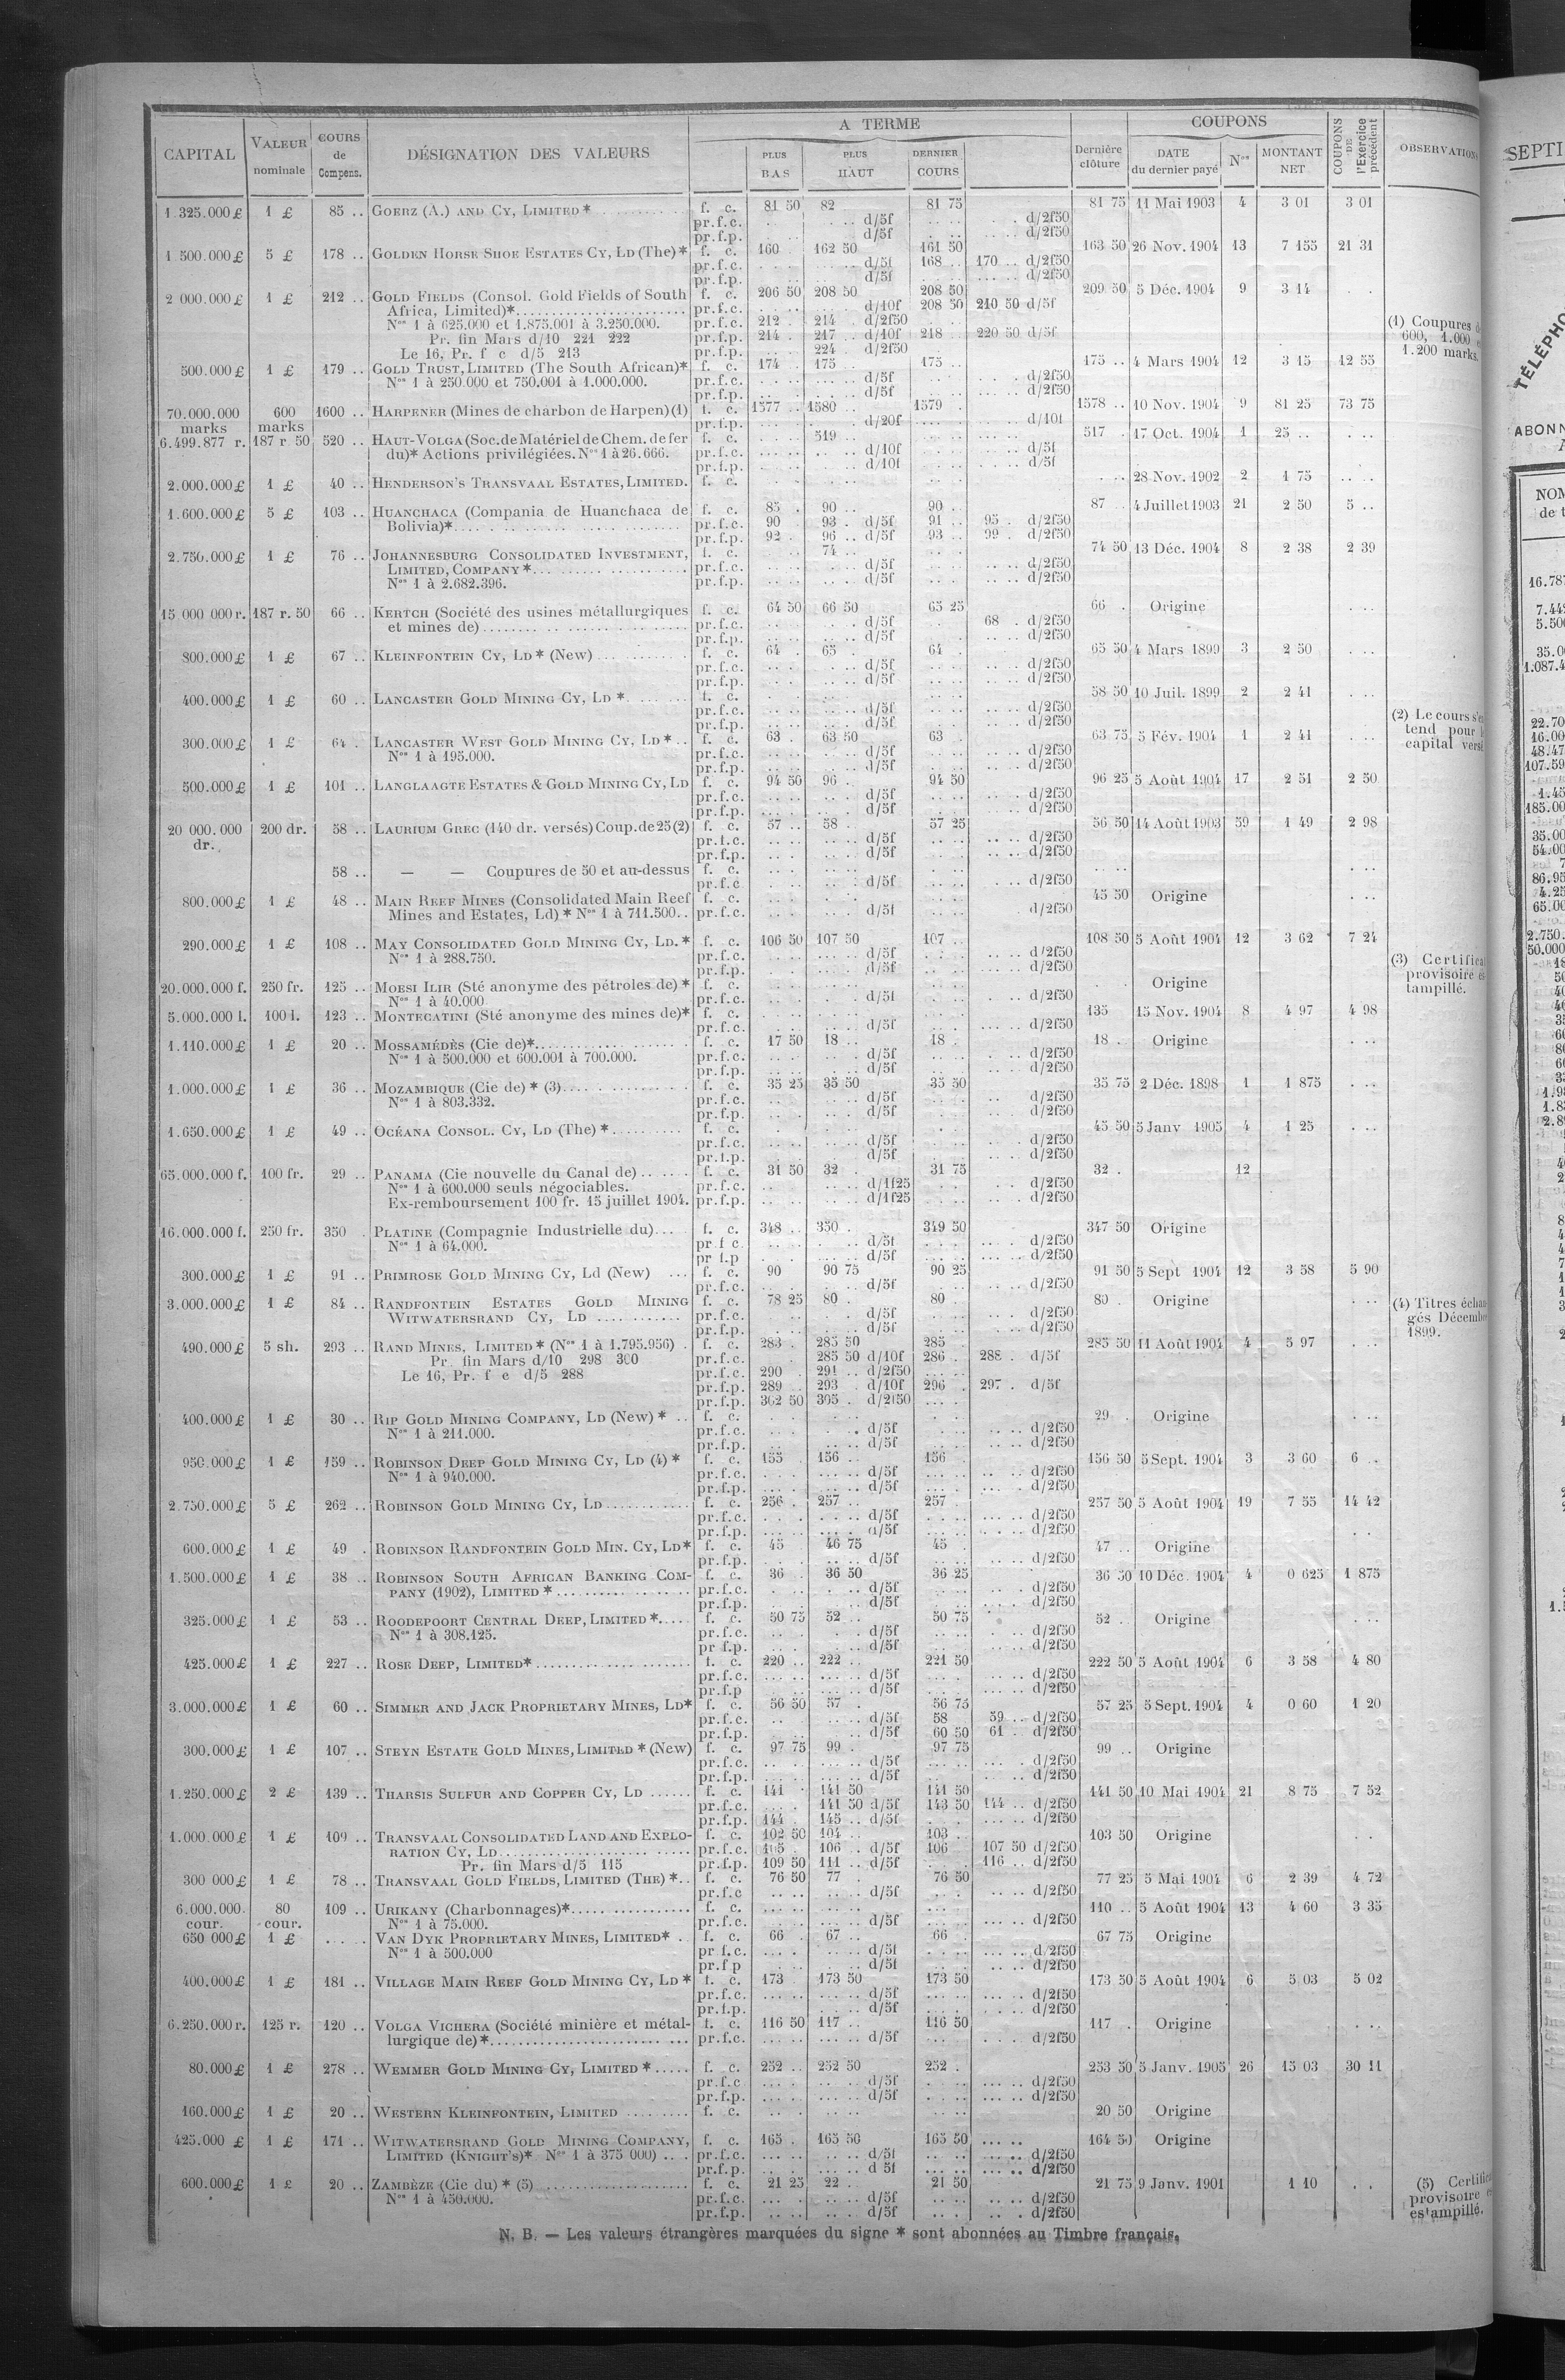 A TERME
COUPONS
CAPITAL
VALEUR nominale
COURS de Compens.
DÉSIGNATION DES VALEURS
PLUS BAS
PLUS HAUT
DERNIER COURS
Dernière clôture
DATE du dernier payé
Nos
MONTANT NET
COUPONS DE l'Exercice précédent
OBSERVATIONS
1.325.000 £ 1 £ 85 .. GOERZ (A.) AND CY, LIMITED * f. c. 81 50 82 81 75 81 75 11 Mai 1903 4 3 01 3 01
pr.f.c. d/5f d/2f50
pr.f.p. d/5f d/2f50
1 500.000 £ 5 £ 178 .. GOLDEN HORSE SHOE ESTATES CY, LD (The) * f. c. 160 162 50 161 50 163 50 26 Nov. 1904 13 7 155 21 31
pr.f.c. d/5f 168 .. 170 .. d/2f50
pr.f.p. d/5f d/2f50
2 000.000 £ 1 £ 212 .. GOLD FIELDS (Consol. Gold Fields of South f. c. 206 50 208 50 208 50 209 50 5 Déc. 1904 9 3 14
Africa, Limited)* pr.f.c. d/10f 208 50 210 50 d/5f
Nos 1 à 625.000 et 1.875.001 à 3.250.000. pr.f.c. 212 214 d/2f50
Pr. fin Mars d/10 221 222 pr.f.p. 214 217 .. d/10f 218 220 50 d/5f
Le 16, Pr. f c d/5 213 pr.f.p. 224 .. d/2f50
500.000 £ 1 £ 179 .. GOLD TRUST, LIMITED (The South African)* f. c. 174 175 175 .. 175 .. 4 Mars 1904 12 3 15 12 55
Nos 1 à 250.000 et 750.001 à 1.000.000. pr.f.c. d/5f d/2f50
pr.f.p. d/5f d/2f50
70.000.000 marks 600 marks 1600 .. HARPENER (Mines de charbon de Harpen) (1) f. c. 1577 .. 1580 .. 1579 1578 .. 10 Nov. 1904 9 81 25 73 75
pr.f.p. d/20f d/10f
6.499.877 r. 187 r. 50 520 .. HAUT-VOLGA (Soc. de Matériel de Chem. de fer f. c. 519 517 17 Oct. 1904 1 25 ..
du)* Actions privilégiées. Nos 1 à 26.666. pr.f.c. d/10f d/5f
pr.f.p. d/10f d/5f
2.000.000 £ 1 £ 40 .. HENDERSON'S TRANSVAAL ESTATES, LIMITED. f. c. 28 Nov. 1902 2 1 75
1.600.000 £ 5 £ 103 .. HUANCHACA (Compania de Huanchaca de f. c. 85 90 .. 90 .. 87 4 Juillet 1903 21 2 50 5 ..
Bolivia)* pr.f.c. 90 93 . d/5f 91 .. 95 . d/2f50
pr.f.p. 92 . 96 .. d/5f 93 .. 99 . d/2f50
2.750.000 £ 1 £ 76 .. JOHANNESBURG CONSOLIDATED INVESTMENT, f. c. 74 .. 74 50 13 Déc. 1904 8 2 38 2 39
LIMITED, COMPANY * pr.f.c. d/5f d/2f50
Nos 1 à 2.682.396. pr.f.p. d/5f d/2f50
15 000 000 r. 187 r. 50 66 .. KERTCH (Société des usines métallurgiques f. c. 64 50 66 50 65 25 66 . Origine
et mines de) pr.f.c. d/5f 68 . d/2f50
pr.f.p. d/5f d/2f50
800.000 £ 1 £ 67 .. KLEINFONTEIN CY, LD * (New) f. c. 64 65 64 65 50 4 Mars 1899 3 2 50
pr.f.c. d/5f d/2f50
pr.f.p. d/5f d/2f50
400.000 £ 1 £ 60 .. LANCASTER GOLD MINING CY, LD * f. c. 58 50 10 Juil. 1899 2 2 41
pr.f.c. d/5f d/2f50
pr.f.p. d/5f d/2f50
300.000 £ 1 £ 64 . LANCASTER WEST GOLD MINING CY, LD * f. c. 63 . 63 50 63 63 75 5 Fév. 1904 1 2 41
Nos 1 à 195.000. pr.f.c. d/5f d/2f50
pr.f.p. d/5f d/2f50
500.000 £ 1 £ 101 .. LANGLAAGTE ESTATES & GOLD MINING CY, LD f. c. 94 50 96 94 50 96 25 5 Août 1904 17 2 51 2 50
pr.f.c. d/5f d/2f50
pr.f.p. d/5f d/2f50
20 000.000 dr. 200 dr. 58 .. LAURIUM GREC (140 dr. versés) Coup. de 25 (2) f. c. 57 .. 58 57 25 56 50 14 Août 1903 59 1 49 2 98
pr.f.c. d/5f d/2f50
pr.f.p. d/5f d/2f50
58 .. — — Coupures de 50 et au-dessus f. c.
pr.f.c d/5f d/2f50
800.000 £ 1 £ 48 .. MAIN REEF MINES (Consolidated Main Reef f. c. 45 50 Origine
Mines and Estates, Ld) * Nos 1 à 711.500 .. pr.f.c. d/5f d/2f50
290.000 £ 1 £ 108 .. MAY CONSOLIDATED GOLD MINING CY, LD. * f. c. 106 50 107 50 107 .. 108 50 5 Août 1904 12 3 62 7 24
Nos 1 à 288.750. pr.f.c. d/5f d/2f50
pr.f.p. d/5f d/2f50
20.000.000 f. 250 fr. 125 .. MOESI ILIR (Sté anonyme des pétroles de) * f. c. Origine
Nos 1 à 40.000 pr.f.c. d/5f d/2f50
5.000.000 l. 100 l. 123 .. MONTECATINI (Sté anonyme des mines de)* f. c. 135 15 Nov. 1904 8 4 97 4 98
pr.f.c. d/5f d/2f50
1.110.000 £ 1 £ 20 .. MOSSAMÉDÈS (Cie de)* f. c. 17 50 18 .. 18 . 18 . Origine
Nos 1 à 500.000 et 600.001 à 700.000. pr.f.c. d/5f d/2f50
pr.f.p. d/5f d/2f50
1.000.000 £ 1 £ 36 .. MOZAMBIQUE (Cie de) * (3) f. c. 35 25 35 50 35 50 35 75 2 Déc. 1898 1 1 875
Nos 1 à 803.332. pr.f.c. d/5f d/2f50
pr.f.p. d/5f d/2f50
1.650.000 £ 1 £ 49 .. OCÉANA CONSOL. CY, LD (The) * f. c. 45 50 5 Janv 1905 4 1 25
pr.f.c. d/5f d/2f50
pr.f.p. d/5f d/2f50
65.000.000 f. 100 fr. 29 .. PANAMA (Cie nouvelle du Canal de) f. c. 31 50 32 . 31 75 32 . 12
Nos 1 à 600.000 seuls négociables. pr.f.c. d/1f25 d/2f50
Ex-remboursement 100 fr. 15 juillet 1904. pr.f.p. d/1f25 d/2f50
16.000.000 f. 250 fr. 350 . PLATINE (Compagnie Industrielle du) f. c. 348 .. 350 . 349 50 347 50 Origine
Nos 1 à 64.000. pr f c. d/5f d/2f50
pr f.p d/5f d/2f50
300.000 £ 1 £ 91 .. PRIMROSE GOLD MINING CY, Ld (New) f. c. 90 90 75 90 25 91 50 5 Sept 1904 12 3 58 5 90
pr.f.c. d/5f d/2f50
3.000.000 £ 1 £ 84 .. RANDFONTEIN ESTATES GOLD MINING f. c. 78 25 80 . 80 . 80 . Origine
WITWATERSRAND CY, LD pr.f.c. d/5f d/2f50
pr.f.p. d/5f d/2f50
490.000 £ 5 sh. 293 .. RAND MINES, LIMITED * (Nos 1 à 1.795.956) . f. c. 283 . 285 50 285 285 50 11 Août 1904 4 5 97
Pr. fin Mars d/10 298 300 pr.f.c. 285 50 d/10f 286 . 288 . d/5f
Le 16, Pr. f e d/5 288 pr.f.c. 290 . 291 .. d/2f50
pr.f.p. 289 .. 293 . d/10f 296 . 297 . d/5f
pr.f.p. 302 50 305 . d/2f50
400.000 £ 1 £ 30 .. RIP GOLD MINING COMPANY, LD (New) * f. c. 29 . Origine
Nos 1 à 211.000. pr.f.c. d/5f d/2f50
pr.f.p. d/5f d/2f50
950.000 £ 1 £ 159 .. ROBINSON DEEP GOLD MINING CY, LD (4) * f. c. 155 156 .. 156 156 50 5 Sept. 1904 3 3 60 6 ..
Nos 1 à 940.000. pr.f.c. d/5f d/2f50
pr.f.p. d/5f d/2f50
2.750.000 £ 5 £ 262 .. ROBINSON GOLD MINING CY, LD f. c. 256 . 257 .. 257 . 257 50 5 Août 1904 19 7 55 14 42
pr.f.c. d/5f d/2f50
pr.f.p. d/5f d/2f50
600.000 £ 1 £ 49 . ROBINSON RANDFONTEIN GOLD MIN. CY, LD* f. c. 45 46 75 45 . 47 .. Origine
pr.f.p. d/5f d/2f50
1.500.000 £ 1 £ 38 .. ROBINSON SOUTH AFRICAN BANKING COM- f. c. 36 36 50 36 25 36 50 10 Déc. 1904 4 0 625 1 875
PANY (1902), LIMITED * pr.f.c. d/5f d/2f50
pr.f.p. d/5f d/2f50
325.000 £ 1 £ 53 .. ROODEPOORT CENTRAL DEEP, LIMITED * f. c. 50 75 52 .. 50 75 52 .. Origine
Nos 1 à 308.125. pr.f.c. d/5f d/2f50
pr f.p. d/5f d/2f50
425.000 £ 1 £ 227 .. ROSE DEEP, LIMITED* f. c. 220 .. 222 .. 221 50 222 50 5 Août 1904 6 3 58 4 80
pr.f.c. d/5f d/2f50
pr.f.p d/5f d/2f50
3.000.000 £ 1 £ 60 .. SIMMER AND JACK PROPRIETARY MINES, LD* f. c. 56 50 57 . 56 75 57 25 5 Sept. 1904 4 0 60 1 20
pr.f.c. d/5f 58 59 .. d/2f50
pr.f.p. d/5f 60 50 61 .. d/2f50
300.000 £ 1 £ 107 .. STEYN ESTATE GOLD MINES, LIMITED * (New) f. c. 97 75 99 . 97 75 99 .. Origine
pr.f.c. d/5f d/2f50
pr.f.p. d/5f d/2f50
1.250.000 £ 2 £ 139 .. THARSIS SULFUR AND COPPER CY, LD f. c. 141 141 50 141 50 141 50 10 Mai 1904 21 8 75 7 52
pr.f.c. 141 50 d/5f 143 50 144 .. d/2f50
pr.f.p. 144 145 .. d/5f d/2f50
1.000.000 £ 1 £ 109 .. TRANSVAAL CONSOLIDATED LAND AND EXPLO- f. c. 102 50 104 .. 103 .. 103 50 Origine
RATION CY, LD pr.f.c. 105 106 .. d/5f 106 107 50 d/2f50
Pr. fin Mars d/5 115 pr.f.p. 109 50 111 .. d/5f 116 .. d/2f50
300 000 £ 1 £ 78 .. TRANSVAAL GOLD FIELDS, LIMITED (THE) * f. c. 76 50 77 . 76 50 77 25 5 Mai 1904 6 2 39 4 72
pr.f.c d/5f d/2f50
6.000.000. cour. 80 cour. 109 .. URIKANY (Charbonnages)* f. c. 110 .. 5 Août 1904 13 4 60 3 35
Nos 1 à 75.000. pr.f.c. d/5f d/2f50
650 000 £ 1 £ VAN DYK PROPRIETARY MINES, LIMITED* . f. c. 66 . 67 .. 66 67 75 Origine
Nos 1 à 500.000 pr f.c. d/5f d/2f50
pr.f p d/5f d/2f50
400.000 £ 1 £ 181 .. VILLAGE MAIN REEF GOLD MINING CY, LD * f. c. 173 173 50 173 50 173 50 5 Août 1904 6 5 03 5 02
pr.f.c. d/5f d/2f50
pr.f.p. d/5f d/2f50
6.250.000 r. 125 r. 120 .. VOLGA VICHERA (Société minière et métal- f. c. 116 50 117 .. 116 50 117 . Origine
lurgique de) * pr.f.c. d/5f d/2f50
80.000 £ 1 £ 278 .. WEMMER GOLD MINING CY, LIMITED * f. c. 252 .. 252 50 252 . 253 50 5 Janv. 1905 26 15 03 30 11
pr.f.c d/5f d/2f50
pr.f.p. d/5f d/2f50
160.000 £ 1 £ 20 .. WESTERN KLEINFONTEIN, LIMITED f. c. 20 50 Origine
425.000 £ 1 £ 171 .. WITWATERSRAND GOLD MINING COMPANY, f. c. 165 . 165 50 165 50 164 50 Origine
LIMITED (KNIGHT'S)* Nos 1 à 375 000) pr.f.c. d/5f d/2f50
pr.f.p. d 5f d/2f50
600.000 £ 1 £ 20 .. ZAMBÈZE (Cie du) * (5) f. c. 21 25 22 .. 21 50 21 75 9 Janv. 1901 1 10
Nos 1 à 450.000. pr.f.c. d/5f d/2f50
pr.f.p. d/5f d/2f50
(1) Coupures
600, 1.000
1.200 marks.
(2) Le cours
tend pour
capital
(3)
provisoire
tampillé.
(4) Titres
gés
1899.
(5)
provisoire
estampillé.
N. B. — Les valeurs étrangères marquées du signe * sont abonnées au Timbre français.
SEPTI
ABONN
NOM
de